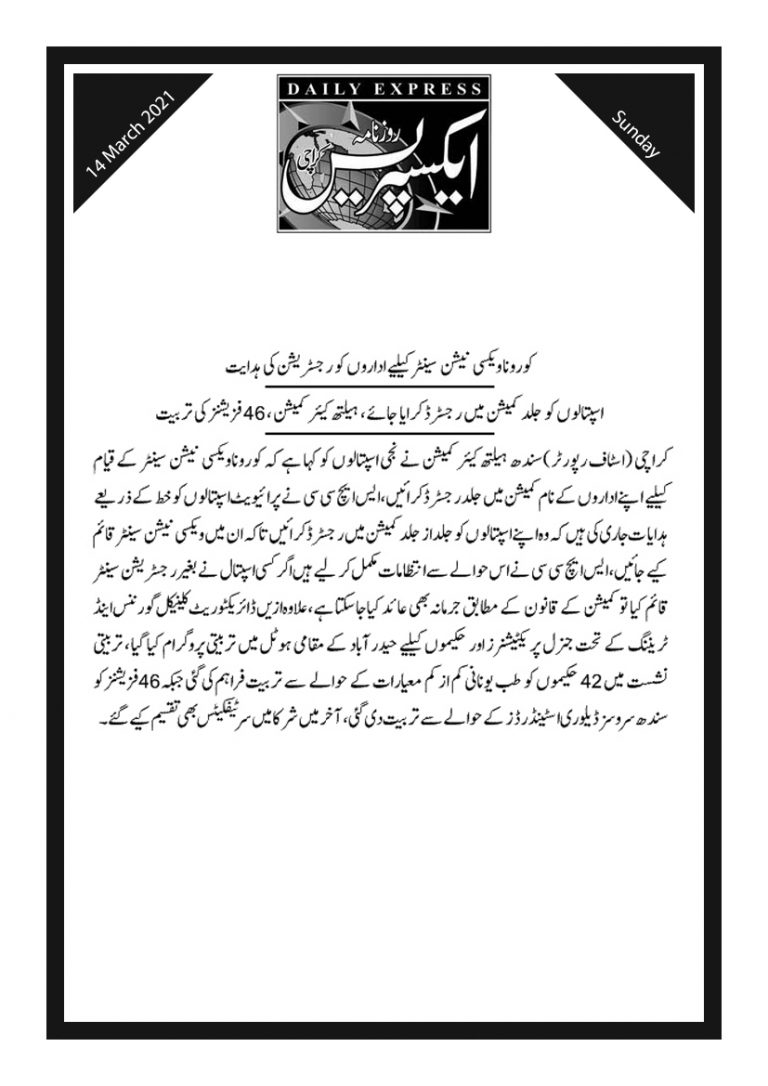 14 March 2021
Sunday
DAILY EXPRESS
روزنامہ
ایکسپریس
کراچی
کوروناویکسی نیشن سینٹر کیلیے اداروں کو رجسٹریشن کی ہدایت
اسپتالوں کو جلد کمیشن میں رجسٹرڈ کرایا جائے، ہیلتھ کیئر کمیشن، 46 فزیشنز کی تربیت
کراچی (اسٹاف رپورٹر) سندھ ہیلتھ کیئر کمیشن نے نجی اسپتالوں کو کہا ہے کہ کوروناویکسی نیشن سینٹر کے قیام
کیلیے اپنے اداروں کے نام کمیشن میں جلد رجسٹرڈ کرائیں، ایس ایچ سی سی نے پرائیویٹ اسپتالوں کو خط کے ذریعے
ہدایات جاری کی ہیں کہ وہ اپنے اسپتالوں کو جلد از جلد کمیشن میں رجسٹرڈ کرائیں تاکہ ان میں ویکسی نیشن سینٹر قائم
کیے جائیں، ایس ایچ سی سی نے اس حوالے سے انتظامات مکمل کر لیے ہیں اگر کسی اسپتال نے بغیر رجسٹریشن سینٹر
قائم کیا تو کمیشن کے قانون کے مطابق جرمانہ بھی عائد کیا جاسکتا ہے، علاوہ ازیں ڈائریکٹوریٹ کلینیکل گورننس اینڈ
ٹریننگ کے تحت جنرل پریکٹیشنرز اور حکیموں کیلیے حیدرآباد کے مقامی ہوٹل میں تربیتی پروگرام کیا گیا، تربیتی
نشست میں 42 حکیموں کو طب یونانی کم از کم معیارات کے حوالے سے تربیت فراہم کی گئی جبکہ 46 فزیشنز کو
سندھ سروسز ڈیلوری اسٹینڈرڈز کے حوالے سے تربیت دی گئی، آخر میں شرکا میں سرٹیفکیٹس بھی تقسیم کیے گئے۔